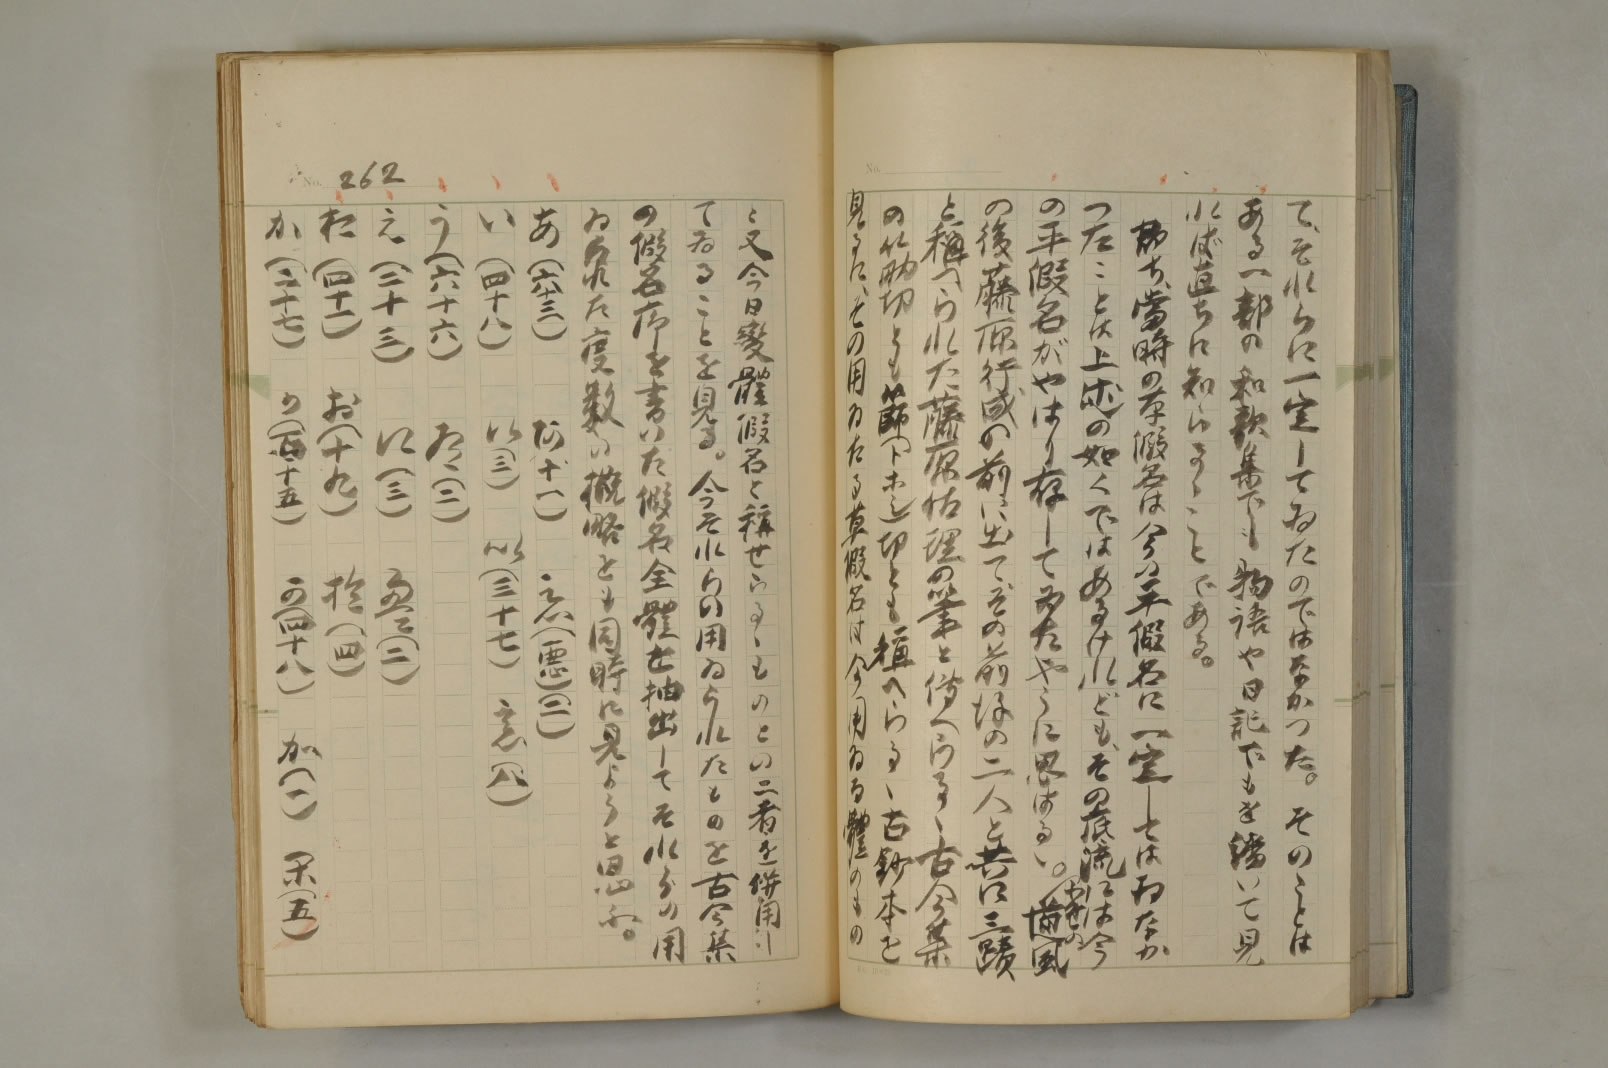 て、それらに一定してゐたのではなかつた。そのことは
ある一部の和歌集でも物語や日記でもを繙いて見
れば直ちに知らるゝことである。
當時の草假名は今の平假名に一定しては居なか
つたことは上述の如くではあるけれども、その底流には今
の平假名がやはり存してゐたやうに思はるゝ。道風
の後藤原行成の前に出てその前後の二人と共に三蹟
と稱へられた藤原佐理の筆と傳へらるゝ古今集
の筋切とも通切とも稱へらるゝ古鈔本を
見るに、その用ゐたる草假名は今用ゐる體のもの
No. 262
と又今日變體假名と稱せらるゝものとの二者を併用し
てゐることを見る。今それらの用ゐられたものを古今集
の假名序を書いた假名全體を抽出してそれらの用
ゐられた度數の概略をも同時に見ようと思ふ。
あ(六三) 阿(十一) 悪(二)
い(四十八) 以(三) 以(三十七) 意(八)
う(六十六) (二)
え(二十三) (三) (二)
お(四十二) お(十九) 於(四)
か(二十七) か(百十五) 可(四十八) 加(一) 閑(五)